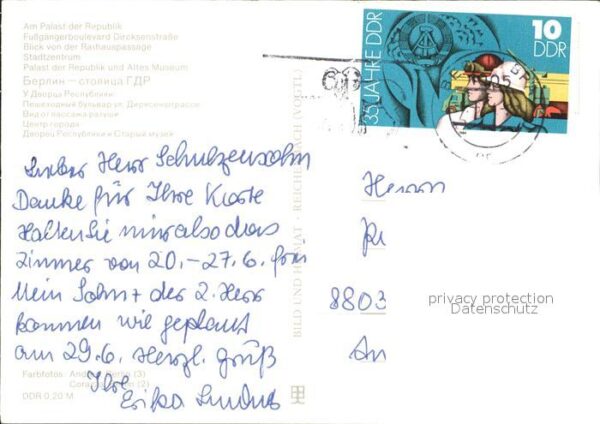 Am Palast der Republik
Fußgängerboulevard Dircksenstraße
Blick von der Rathauspassage
Stadtzentrum
Palast der Republik und Altes Museum
Берлин — столица ГДР
У Дворца Республики
Пешеходный бульвар ул. Дирксенштрассе
Вид от пассажа ратуши
Центр города
Дворец Республики и Старый музей
35 JAHRE DDR
10
DDR
BILD UND HEIMAT · REICHENBACH (VOGTL)
Lieber Herr
Danke für Ihre Karte
Halten Sie mir also das
Zimmer von 20.–27.6. frei
Mein Sohn + der 2. Herr
kommen wie geplant
am 29.6. Herzl. Gruß
Ihre
Erika
Herrn
8803
An
privacy protection
Datenschutz
Farbfotos: (3)
(2)
DDR 0,20 M